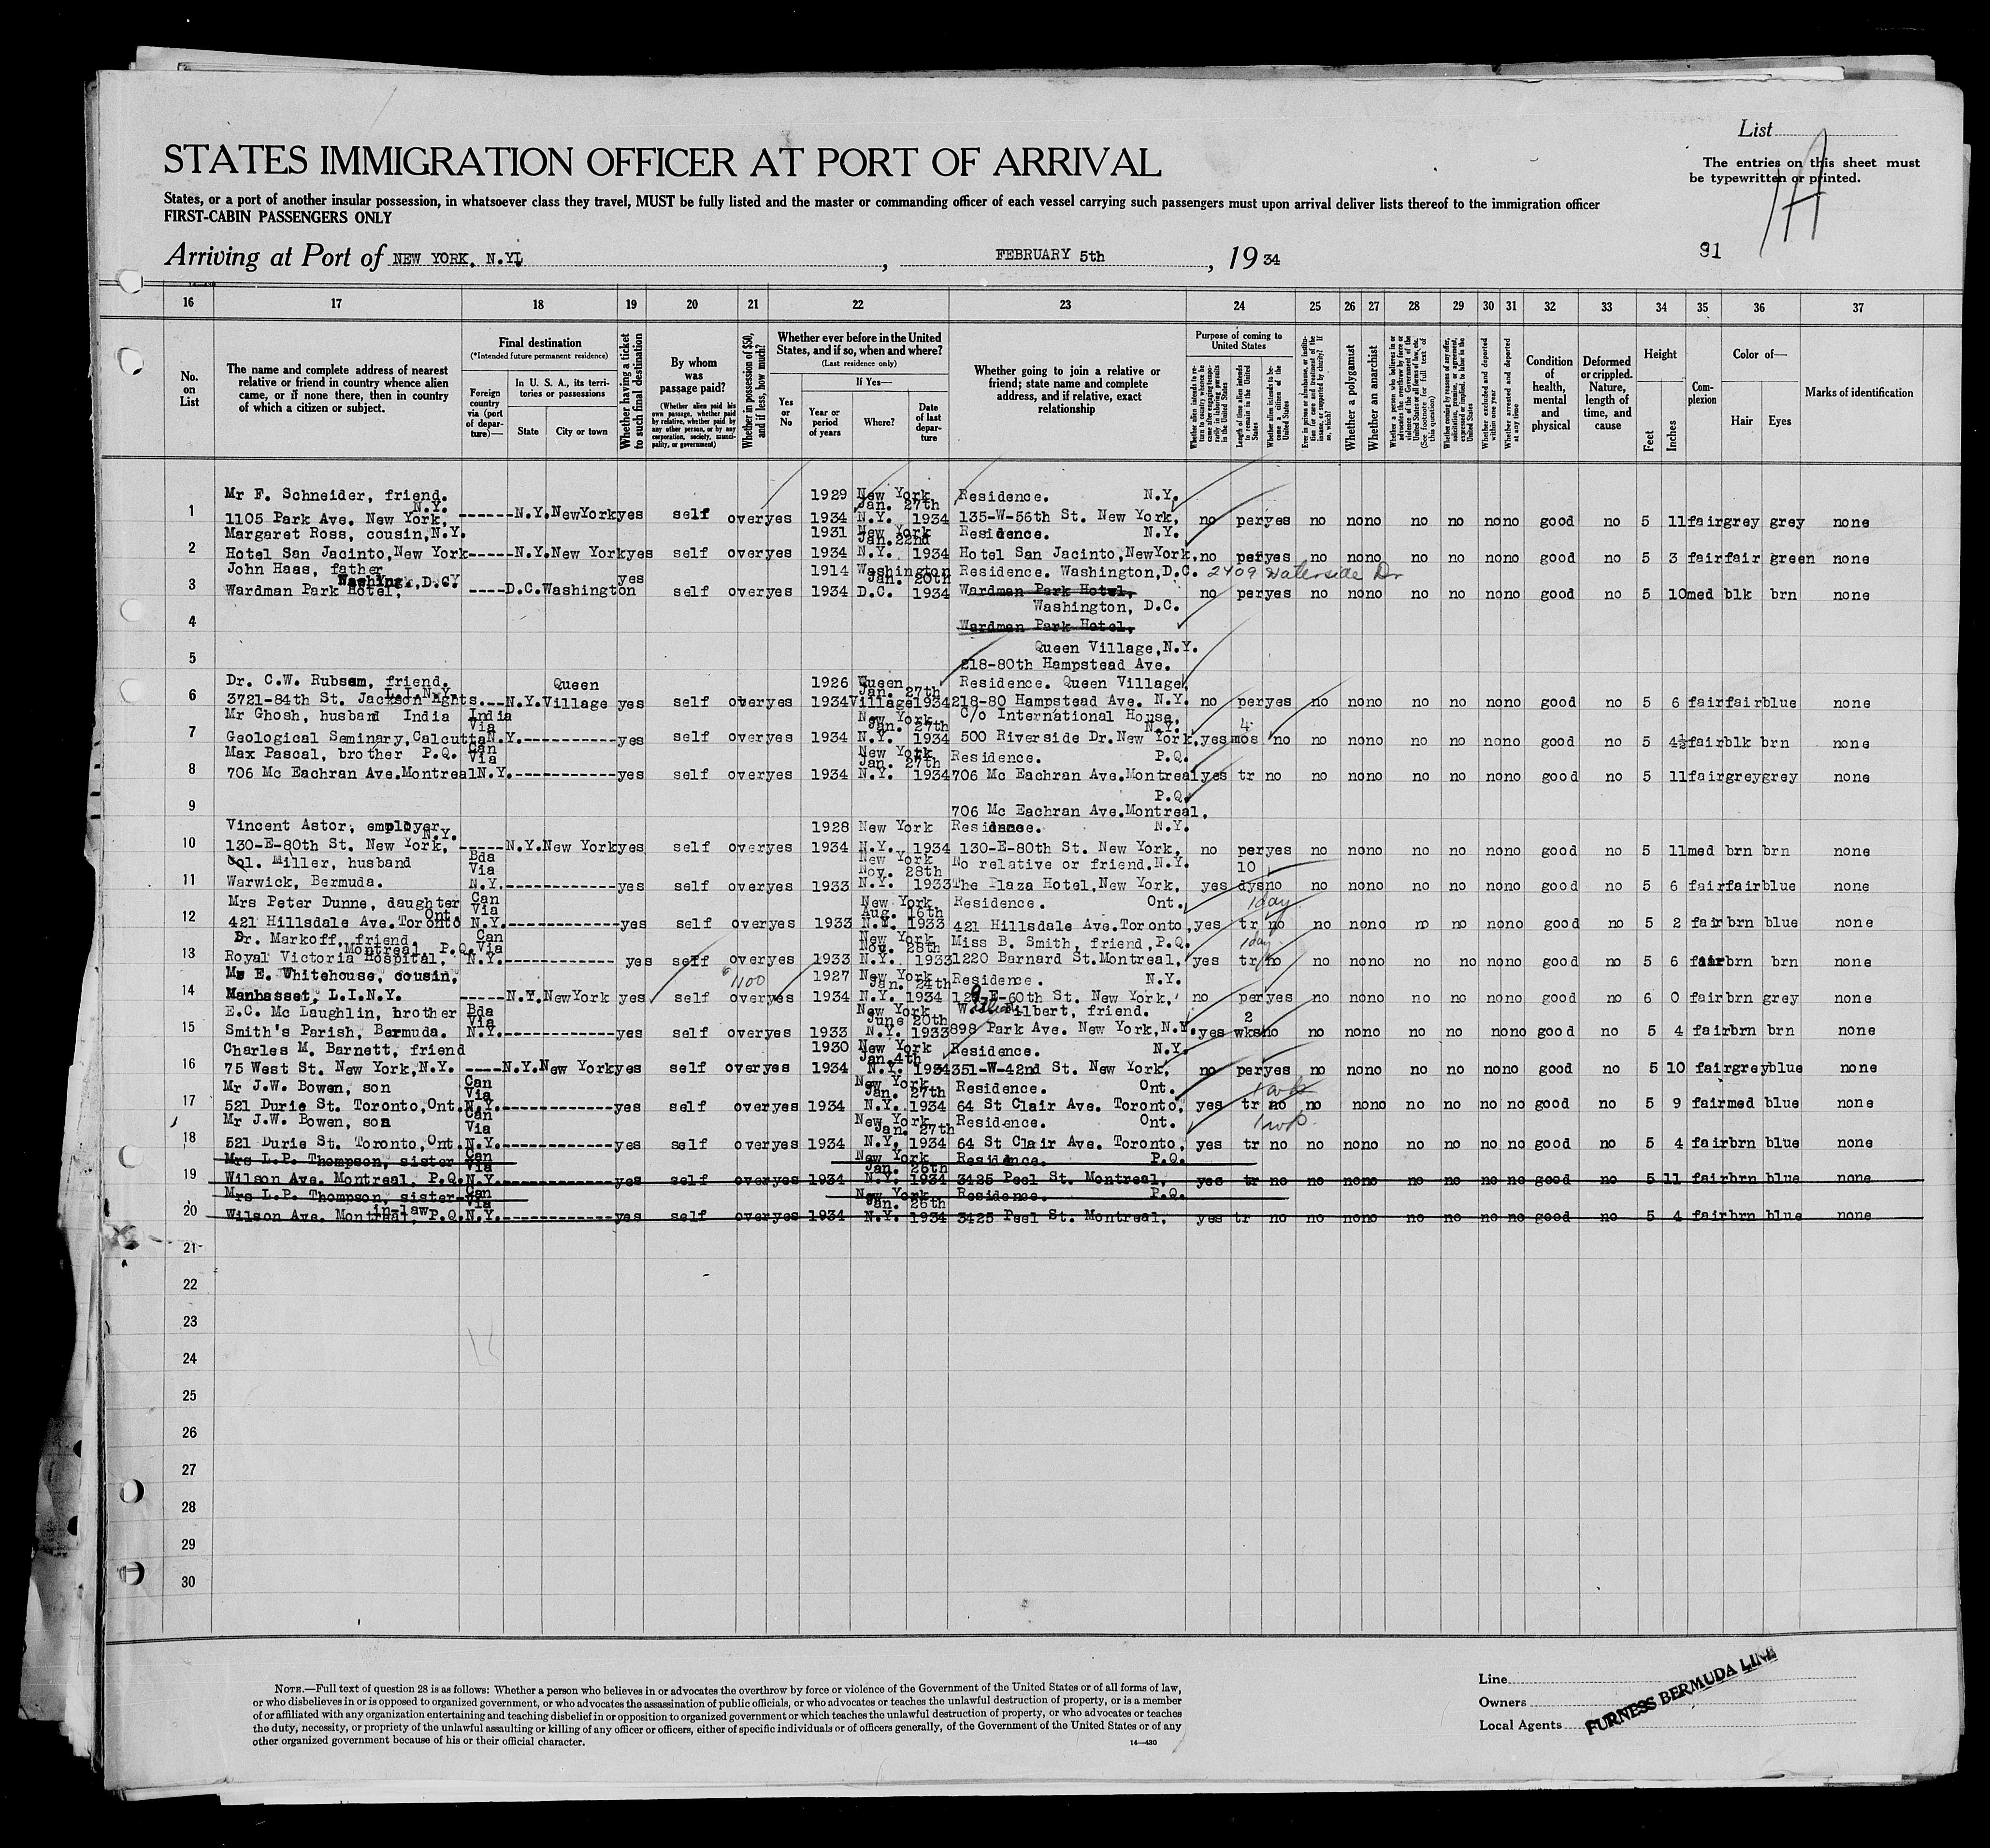 List
The entries on this sheet must
be typewritten or printed.
1A
STATES IMMIGRATION OFFICER AT PORT OF ARRIVAL
States, or a port of another insular possession, in whatsoever class they travel, MUST be fully listed and the master or commanding officer of each vessel carrying such passengers must upon arrival deliver lists thereof to the immigration officer
FIRST-CABIN PASSENGERS ONLY
Arriving at Port of NEW YORK, N.Y. , FEBRUARY 5th , 1934
91
16 17 18 19 20 21 22 23 24 25 26 27 28 29 30 31 32 33 34 35 36 37
No. on List
The name and complete address of nearest relative or friend in country whence alien came, or if none there, then in country of which a citizen or subject.
Final destination
(*Intended future permanent residence)
Foreign country via (port of departure)—
In U. S. A., its territories or possessions
State
City or town
Whether having a ticket to such final destination
By whom was passage paid?
(Whether alien paid his own passage, whether paid by relative, whether paid by any other person, or by any corporation, society, municipality, or government)
Whether in possession of $50, and if less, how much?
Whether ever before in the United States, and if so, when and where?
(Last residence only)
If Yes—
Yes or No
Year or period of years
Where?
Date of last departure
Whether going to join a relative or friend; state name and complete address, and if relative, exact relationship
Purpose of coming to United States
Whether alien intends to return to country whence he came after engaging temporarily in laboring pursuits in the United States
Length of time alien intends to remain in the United States
Whether alien intends to become a citizen of the United States
Ever in prison or almshouse, or institution for care and treatment of the insane, or supported by charity? If so, which?
Whether a polygamist
Whether an anarchist
Whether a person who believes in or advocates the overthrow by force or violence of the Government of the United States or all forms of law, etc. (See footnote for full text of this question)
Whether coming by reason of any offer, solicitation, promise, or agreement, expressed or implied, to labor in the United States
Whether excluded and deported within one year
Whether arrested and deported at any time
Condition of health, mental and physical
Deformed or crippled. Nature, length of time, and cause
Height
Feet
Inches
Complexion
Color of—
Hair
Eyes
Marks of identification
Mr F. Schneider, friend. 1929 New York Residence. N.Y.
N.Y. Jan. 27th
1 1105 Park Ave. New York, ------N.Y.NewYork yes self over yes 1934 N.Y. 1934 135-W-56th St. New York, no per yes no no no no no no no good no 5 11 fair grey grey none
Margaret Ross, cousin,N.Y. 1931 New York Residence. N.Y.
Jan.22nd
2 Hotel San Jacinto,New York-----N.Y.New York yes self over yes 1934 N.Y. 1934 Hotel San Jacinto,NewYork, no per yes no no no no no no no good no 5 3 fair fair green none
John Haas, father 1914 Washington Residence. Washington,D.C. 2409 Waterside Dr
Jan. 20th
3 Wardman Park Hotel, ----D.C.Washington yes self over yes 1934 D.C. 1934 Wardman Park Hotel, no per yes no no no no no no no good no 5 10 med blk brn none
Washington, D.C.
4 Wardman Park Hotel,
Queen Village,N.Y.
5 218-80th Hampstead Ave.
Dr. C.W. Rubsam, friend. Queen 1926 Queen Residence. Queen Village,
L.I.N.Y. Jan. 27th
6 3721-84th St. Jackson Hghts.--N.Y.Village yes self over yes 1934 Village 1934 218-80 Hampstead Ave. N.Y. no per yes no no no no no no no good no 5 6 fair fair blue none
Mr Ghosh, husband India India Via New York C/o International House,
Jan. 27th N.Y. 4
7 Geological Seminary,Calcutta N.Y.------------yes self over yes 1934 N.Y. 1934 500 Riverside Dr.New York, yes mos no no no no no no no no good no 5 4½ fair blk brn none
Max Pascal, brother P.Q. Can Via New York Residence. P.Q.
Jan. 27th
8 706 Mc Eachran Ave.Montreal N.Y.------------yes self over yes 1934 N.Y. 1934 706 Mc Eachran Ave.Montreal yes tr no no no no no no no no good no 5 11 fair grey grey none
P.Q.
9 706 Mc Eachran Ave.Montreal,
Vincent Astor, employer 1928 New York Residence. N.Y.
N.Y.
10 130-E-80th St. New York, -----N.Y.New York yes self over yes 1934 N.Y. 1934 130-E-80th St. New York, no per yes no no no no no no no good no 5 11 med brn brn none
Col. Miller, husband Bda Via New York No relative or friend.N.Y. 10
Nov. 28th
11 Warwick, Bermuda. N.Y.------------yes self over yes 1933 N.Y. 1933 The Plaza Hotel,New York, yes dys no no no no no no no no good no 5 6 fair fair blue none
Mrs Peter Dunne, daughter Can Via New York Residence. Ont. 1 day
Ont. Aug. 16th
12 421 Hillsdale Ave.Toronto N.Y.------------yes self over yes 1933 N.Y. 1933 421 Hillsdale Ave.Toronto, yes tr no no no no no no no no good no 5 2 fair brn blue none
Dr. Markoff, friend. Can Via New York Miss B. Smith, friend,P.Q. 1 day
Montreal, P.Q. Nov. 28th
13 Royal Victoria Hospital, N.Y.------------ yes self over yes 1933 N.Y. 1933 1220 Barnard St.Montreal, yes tr no no no no no no no no good no 5 6 fair brn brn none
E. Whitehouse, cousin, 1100 1927 New York Residence. N.Y.
Jan. 24th
14 Manhasset, L.I.N.Y. -----N.Y.NewYork yes self over yes 1934 N.Y. 1934 E-60th St. New York, no per yes no no no no no no no good no 6 0 fair brn grey none
E.C. Mc Laughlin, brother Bda Via New York friend. 2
June 20th
15 Smith's Parish, Bermuda. N.Y.------------yes self over yes 1933 N.Y. 1933 898 Park Ave. New York,N.Y. yes wks no no no no no no no no good no 5 4 fair brn brn none
Charles M. Barnett, friend 1930 New York Residence. N.Y.
Jan.4th
16 75 West St. New York,N.Y. ----N.Y.New York yes self over yes 1934 N.Y. 1934 351-W-42nd St. New York, no per yes no no no no no no no good no 5 10 fair grey blue none
Mr J.W. Bowen, son Can Via New York Residence. Ont.
Jan. 27th
17 521 Durie St. Toronto,Ont. N.Y.------------yes self over yes 1934 N.Y. 1934 64 St Clair Ave. Toronto, yes tr no no no no no no no no good no 5 9 fair med blue none
Mr J.W. Bowen, son Can Via New York Residence. Ont.
Jan. 27th
18 521 Durie St. Toronto,Ont. N.Y.------------yes self over yes 1934 N.Y. 1934 64 St Clair Ave. Toronto, yes tr no no no no no no no no good no 5 4 fair brn blue none
Mrs L.P. Thompson, sister Can Via New York Residence. P.Q.
Jan. 26th
19 Wilson Ave. Montreal, P.Q. N.Y.------------yes self over yes 1934 N.Y. 1934 3425 Peel St. Montreal, yes tr no no no no no no no no good no 5 11 fair brn blue none
Mrs L.P. Thompson, sister- Can Via New York Residence. P.Q.
in-law Jan. 26th
20 Wilson Ave. Montreal, P.Q. N.Y.------------yes self over yes 1934 N.Y. 1934 3425 Peel St. Montreal, yes tr no no no no no no no no good no 5 4 fair brn blue none
21
22
23
24
25
26
27
28
29
30
NOTE.—Full text of question 28 is as follows: Whether a person who believes in or advocates the overthrow by force or violence of the Government of the United States or of all forms of law,
or who disbelieves in or is opposed to organized government, or who advocates the assassination of public officials, or who advocates or teaches the unlawful destruction of property, or is a member
of or affiliated with any organization entertaining and teaching disbelief in or opposition to organized government or which teaches the unlawful destruction of property, or who advocates or teaches
the duty, necessity, or propriety of the unlawful assaulting or killing of any officer or officers, either of specific individuals or of officers generally, of the Government of the United States or of any
other organized government because of his or their official character.
14—430
Line
Owners
Local Agents
FURNESS BERMUDA LINE